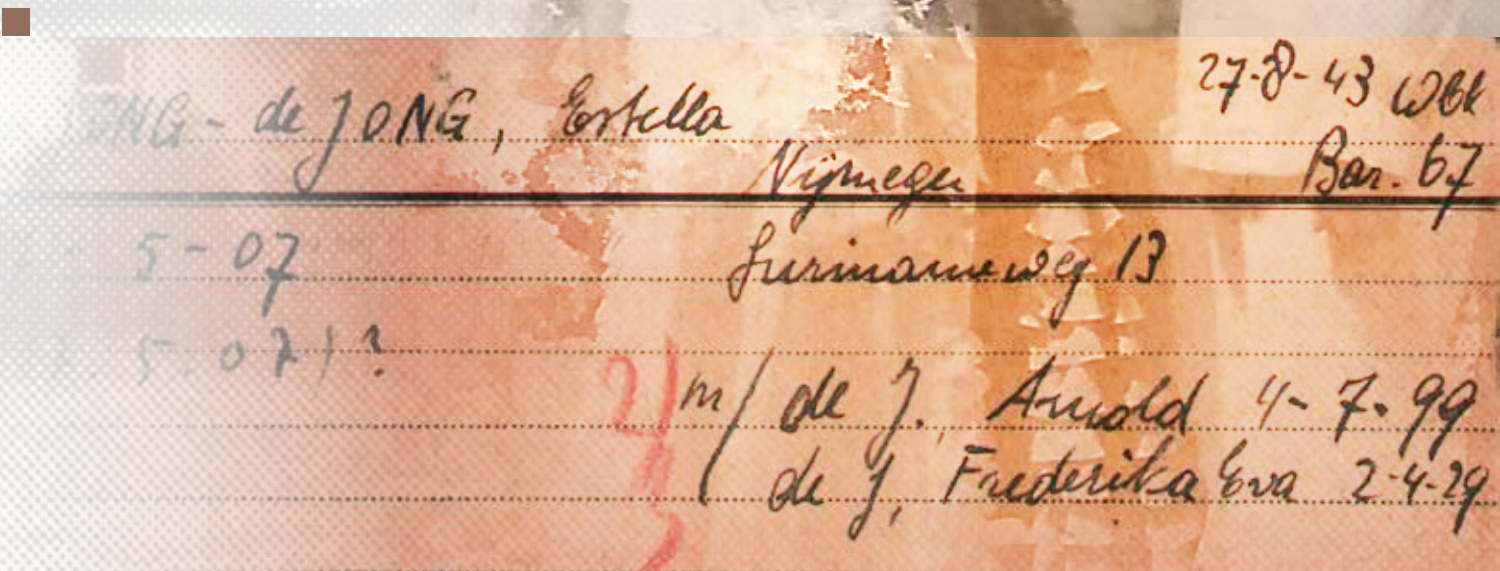 ONG- de JONG, Estella 27-8-43 WBK
Nijmegen Bar. 67
5-07 Surinameweg 13
5.07) ?
2) m/ de J. Arnold 4-7-99
de J, Frederika Eva 2-4-29